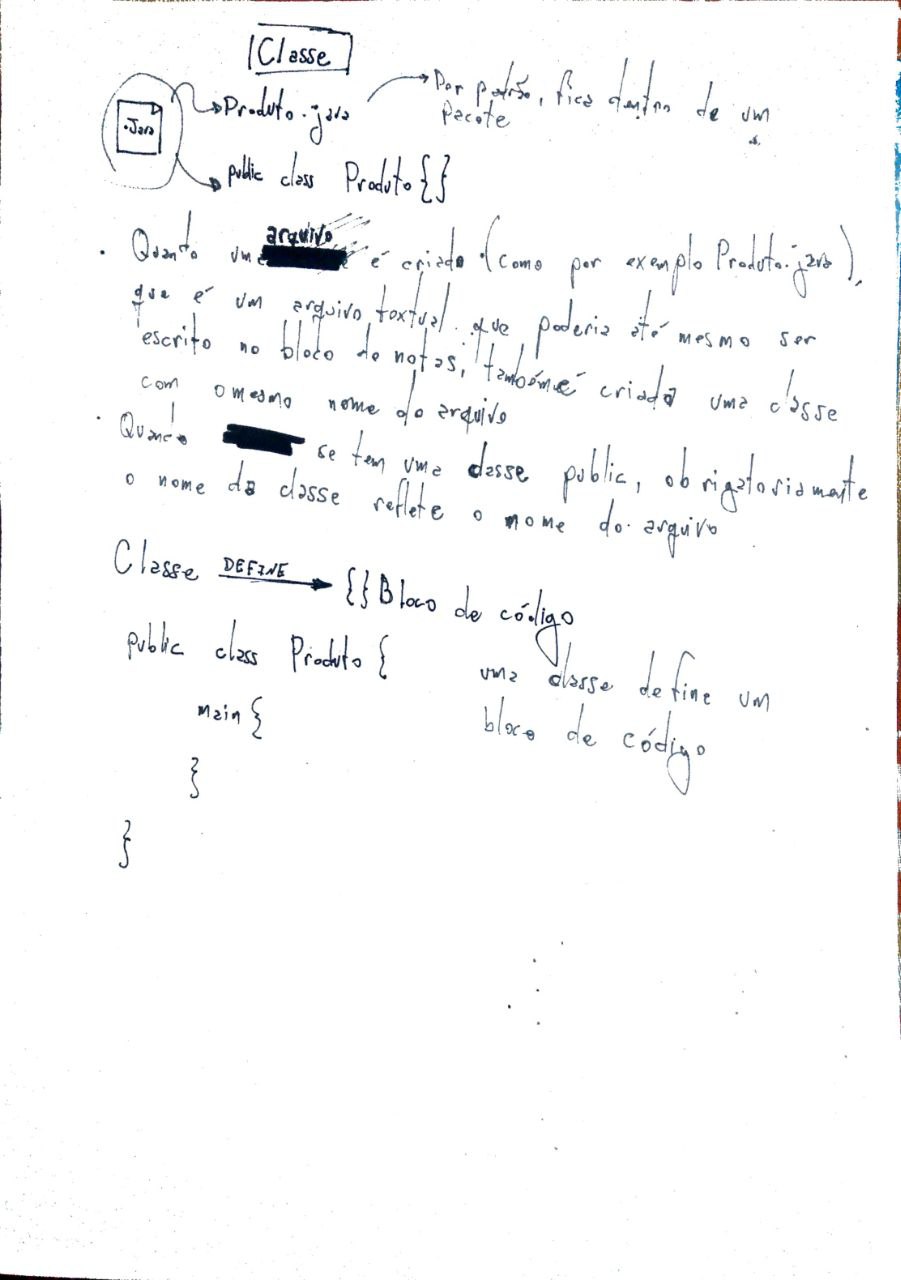 Classe
Produto.java
Por padrão, fica dentro de um
pacote
.Java
public class Produto {}
arquivo
. Quando uma é criado (como por exemplo Produto.java),
que é um arquivo textual que poderia até mesmo ser
escrito no bloco de notas, também é criada uma classe
com o mesmo nome do arquivo
. Quando se tem uma classe public, obrigatoriamente
o nome da classe reflete o nome do arquivo
Classe DEFINE {} Bloco de código
public class Produto {
uma classe define um
main {
bloco de código
}
}